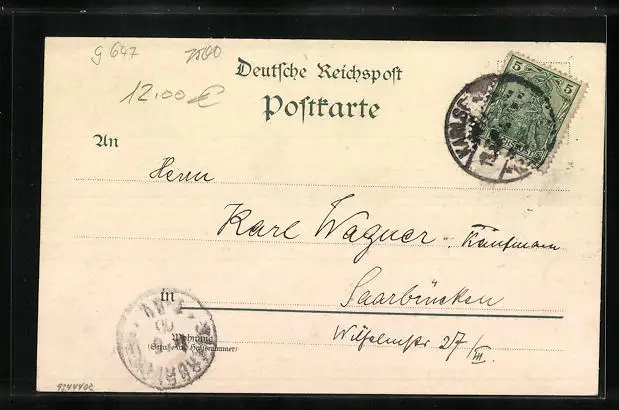 g 647
12.00 €
Deutsche Reichspost
Postkarte
5 5
KARLSR
An
Herrn
Karl Wagner Kaufmann
in Saarbrücken
Wohnung
(Straße und Hausnummer)
Wilhelmstr 27/III.
9244402